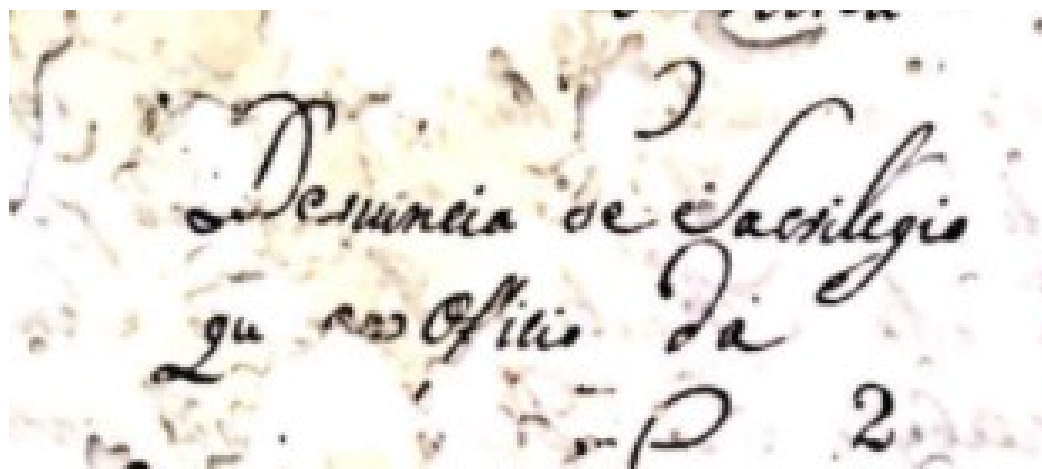 Denuncia de Sacrilegio
qu Oficio da
2